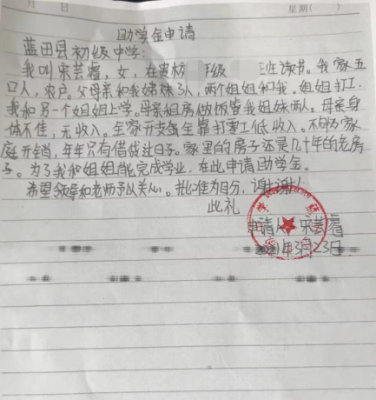 月 日 星期( )
助学金申请
蓝田县初级中学:
我叫宋芸霜, 女, 在贵校 级 班读书。我家五
口人, 农户, 父母亲和我姊妹3人, 两个姐姐和我, 姐姐打工.
我和另一个姐姐上学。母亲租房做饭管我姐妹两人。母亲身
体不佳, 无收入。全家开支全靠打零工低收入。不够家
庭开销, 年年只有借贷过日子。家里的房子还是几十年的老房
子。为了我和姐姐能完成学业, 在此申请助学金。
希望领导和老师予以关心。批准为盼, 谢谢!
此礼
申请人 宋芸霜
年3月23日.